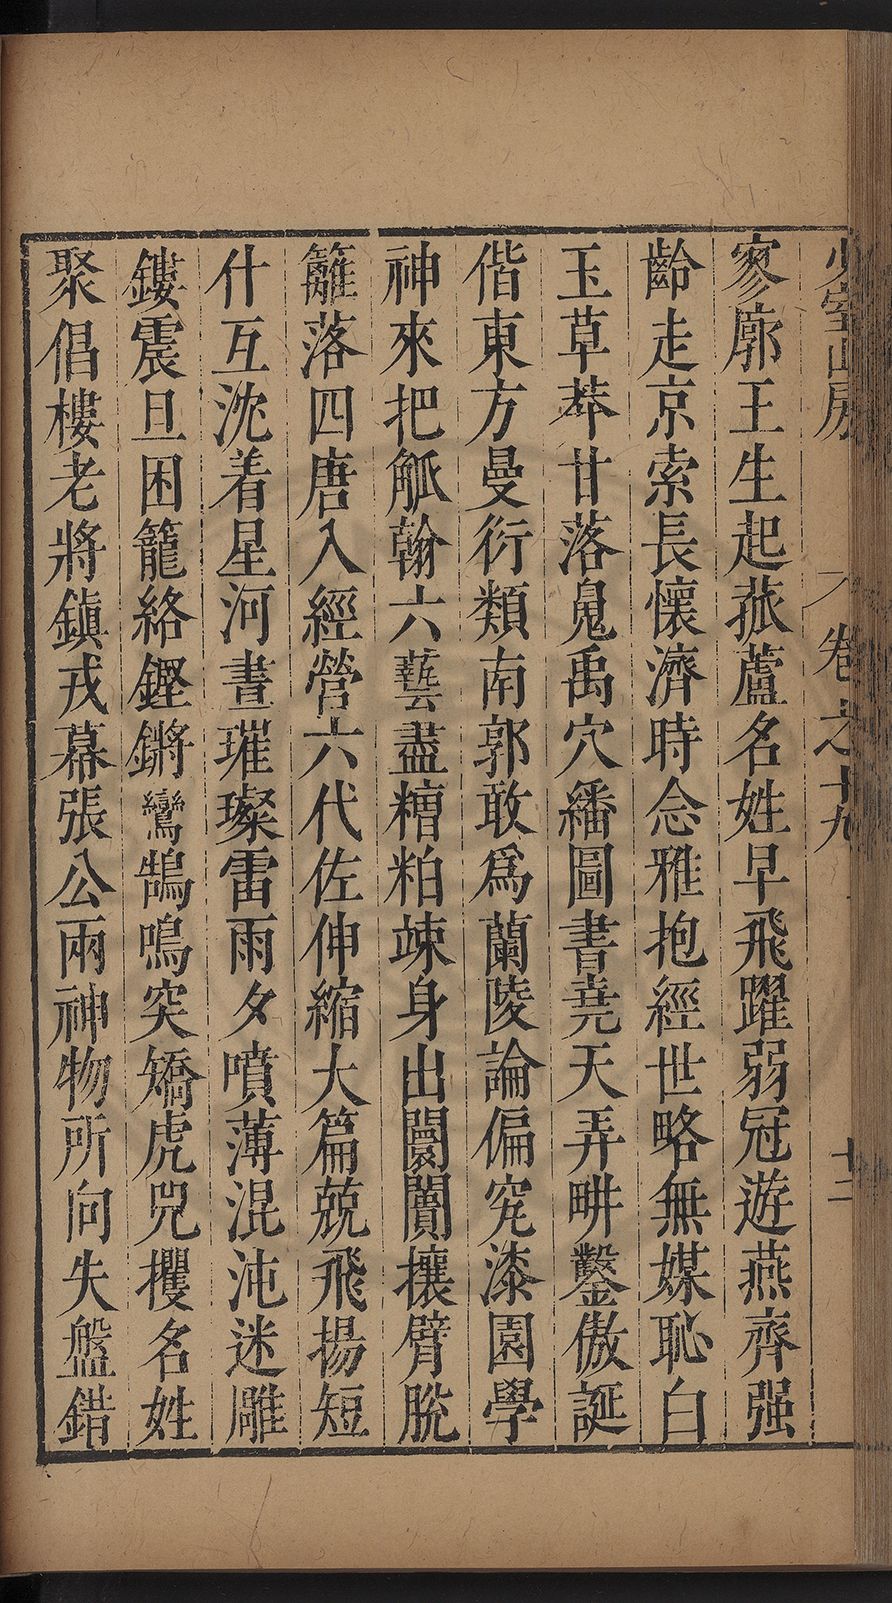 少室山房 卷之十九 十二
寥廓王生起菰蘆名姓早飛躍弱冠遊燕齊强
齡走京索長懷濟時念雅抱經世略無媒恥白
玉草莽甘落鬼禹穴繙圖書堯天弄畊鑿傲誕
偕東方曼衍類南郭敢爲蘭陵論偏究漆園學
神來把觚翰六藝盡糟粕竦身出闤闠攘臂脫
籬落四唐入經營六代佐伸縮大篇兢飛揚短
什互沈着星河晝璀璨雷雨夕噴薄混沌迷雕
鏤震旦困籠絡鏗鏘鸞鵠鳴突矯虎兕攫名姓
聚倡樓老將鎮戎幕張公兩神物所向失盤錯